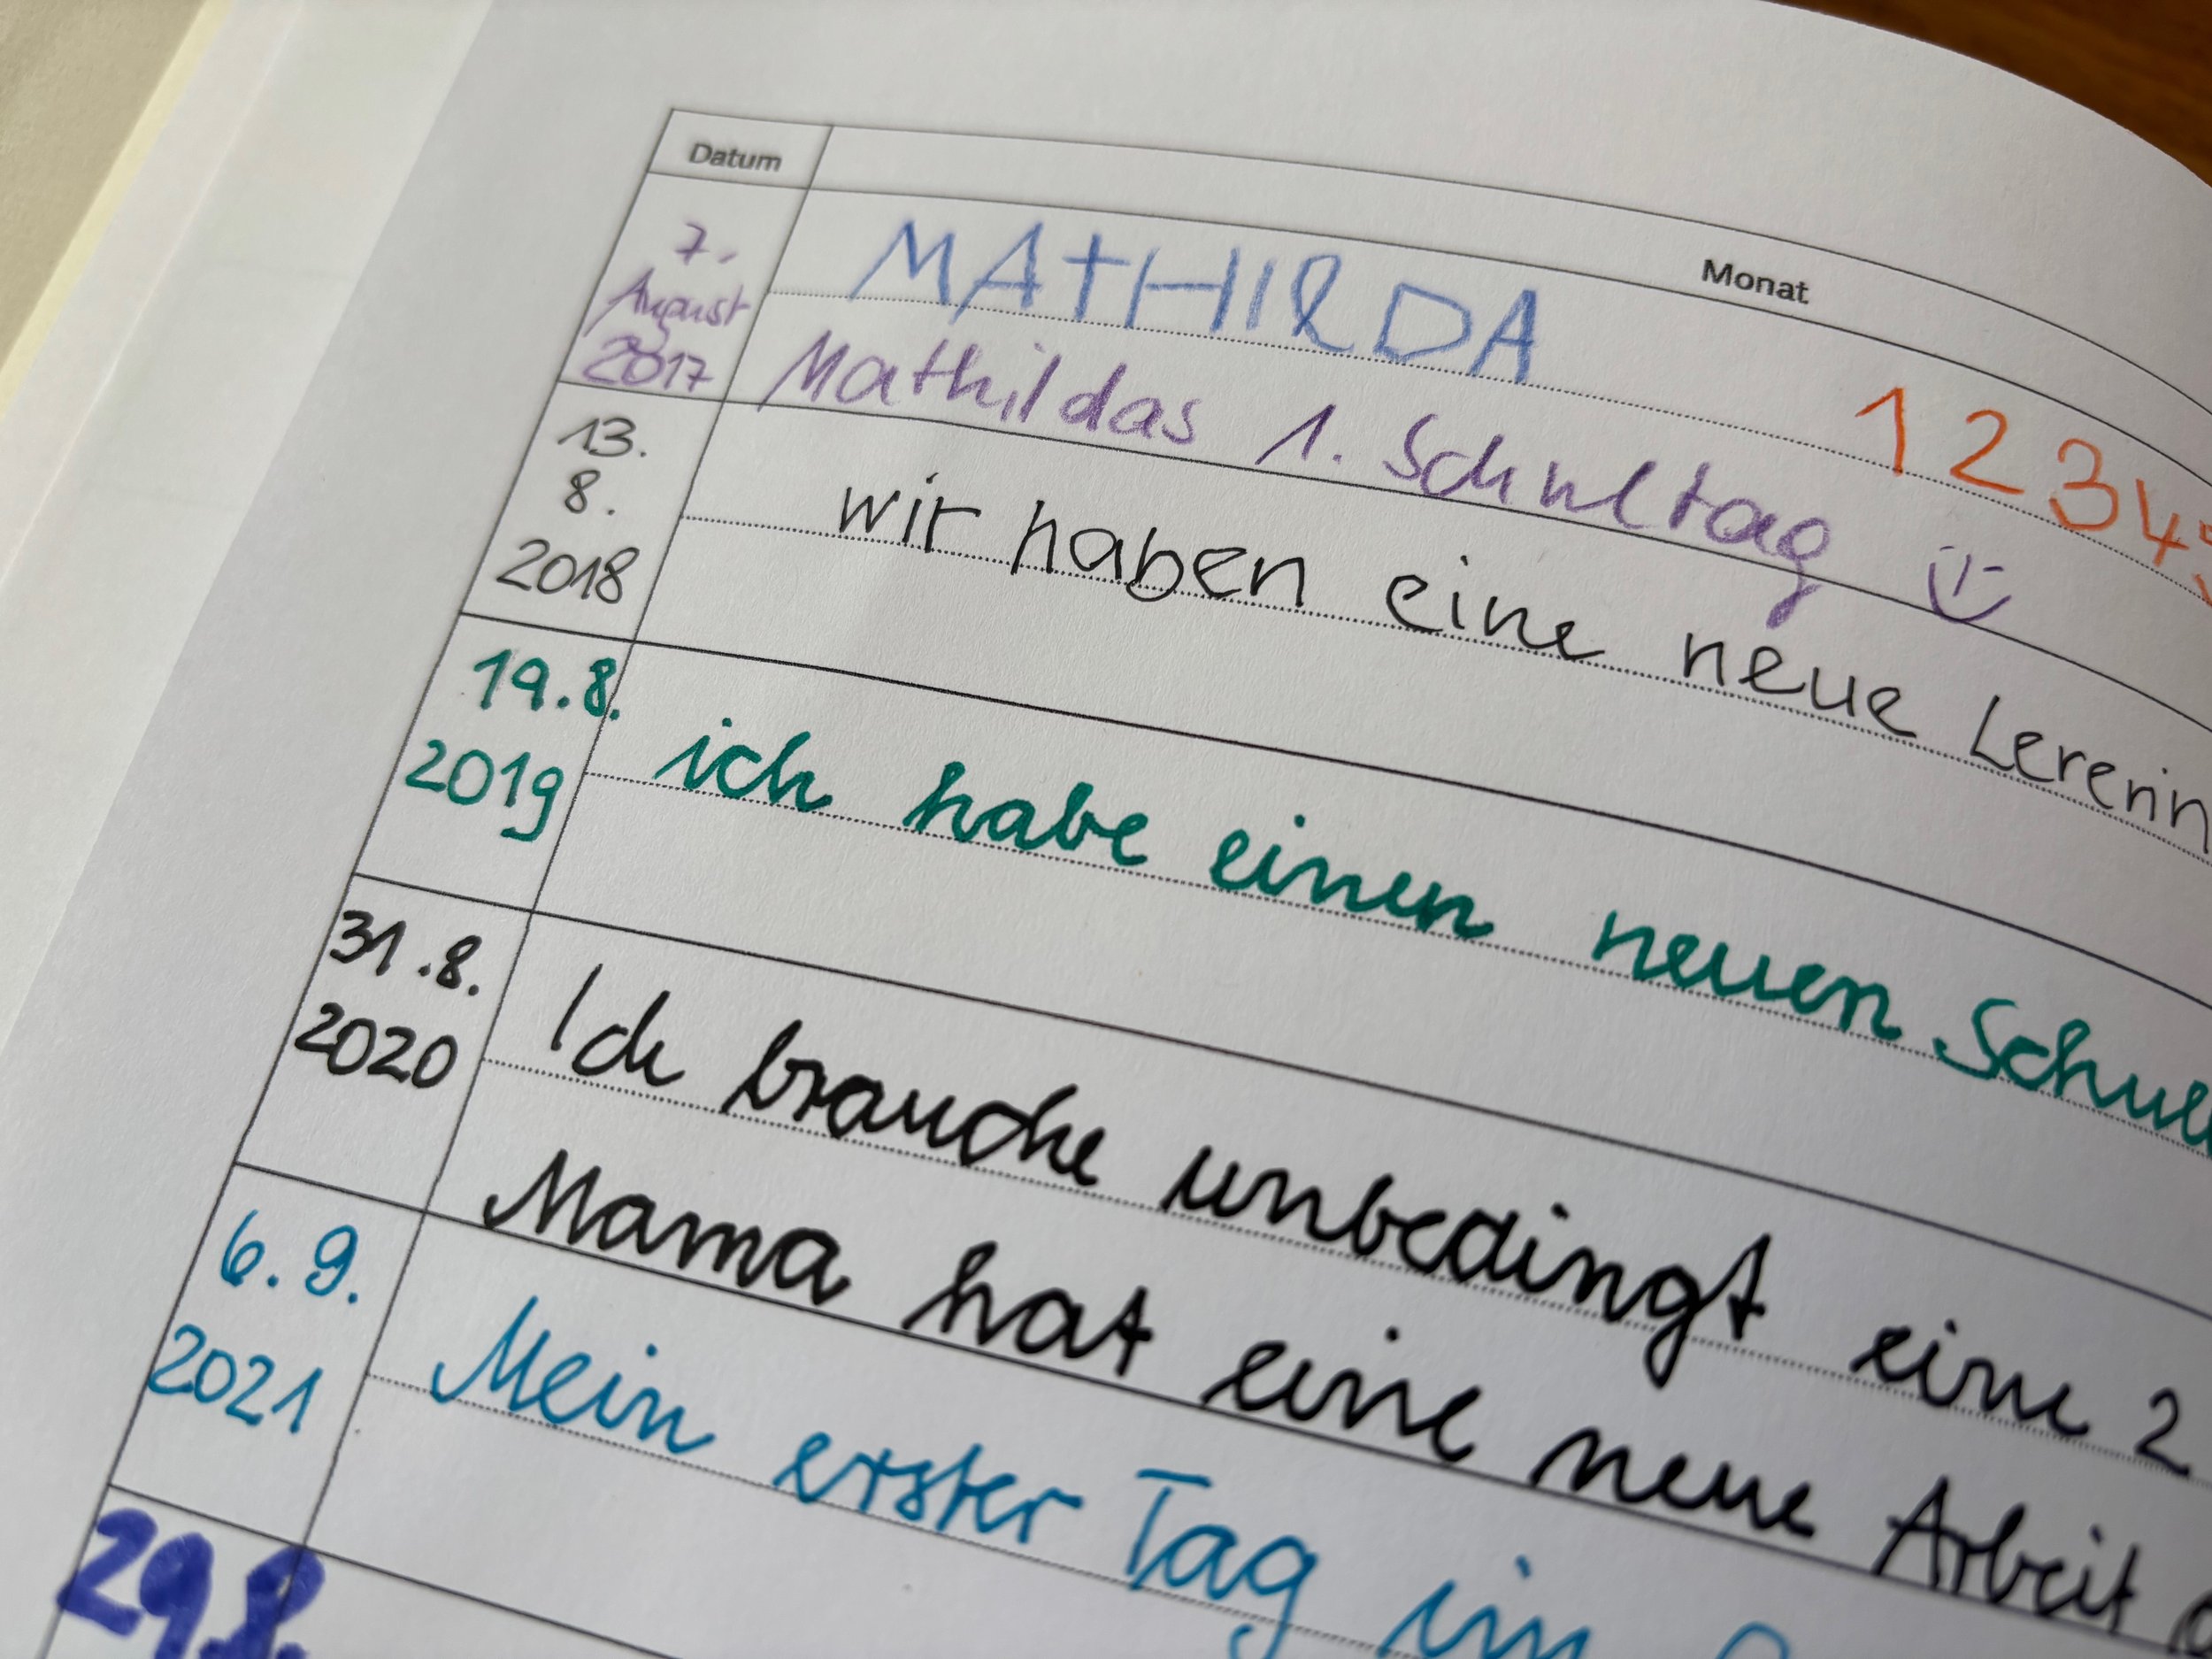 Datum Monat
7. MATHILDA 1 2 3 4
August
2017 Mathildas 1. Schultag :-)
13. wir haben eine neue Lererin
8.
2018
19.8. ich habe einen neuen
2019
31.8. Ich brauche unbedingt eine 2
2020
Mama hat eine neue Arbeit
6.9. Mein erster Tag im
2021
29.8.